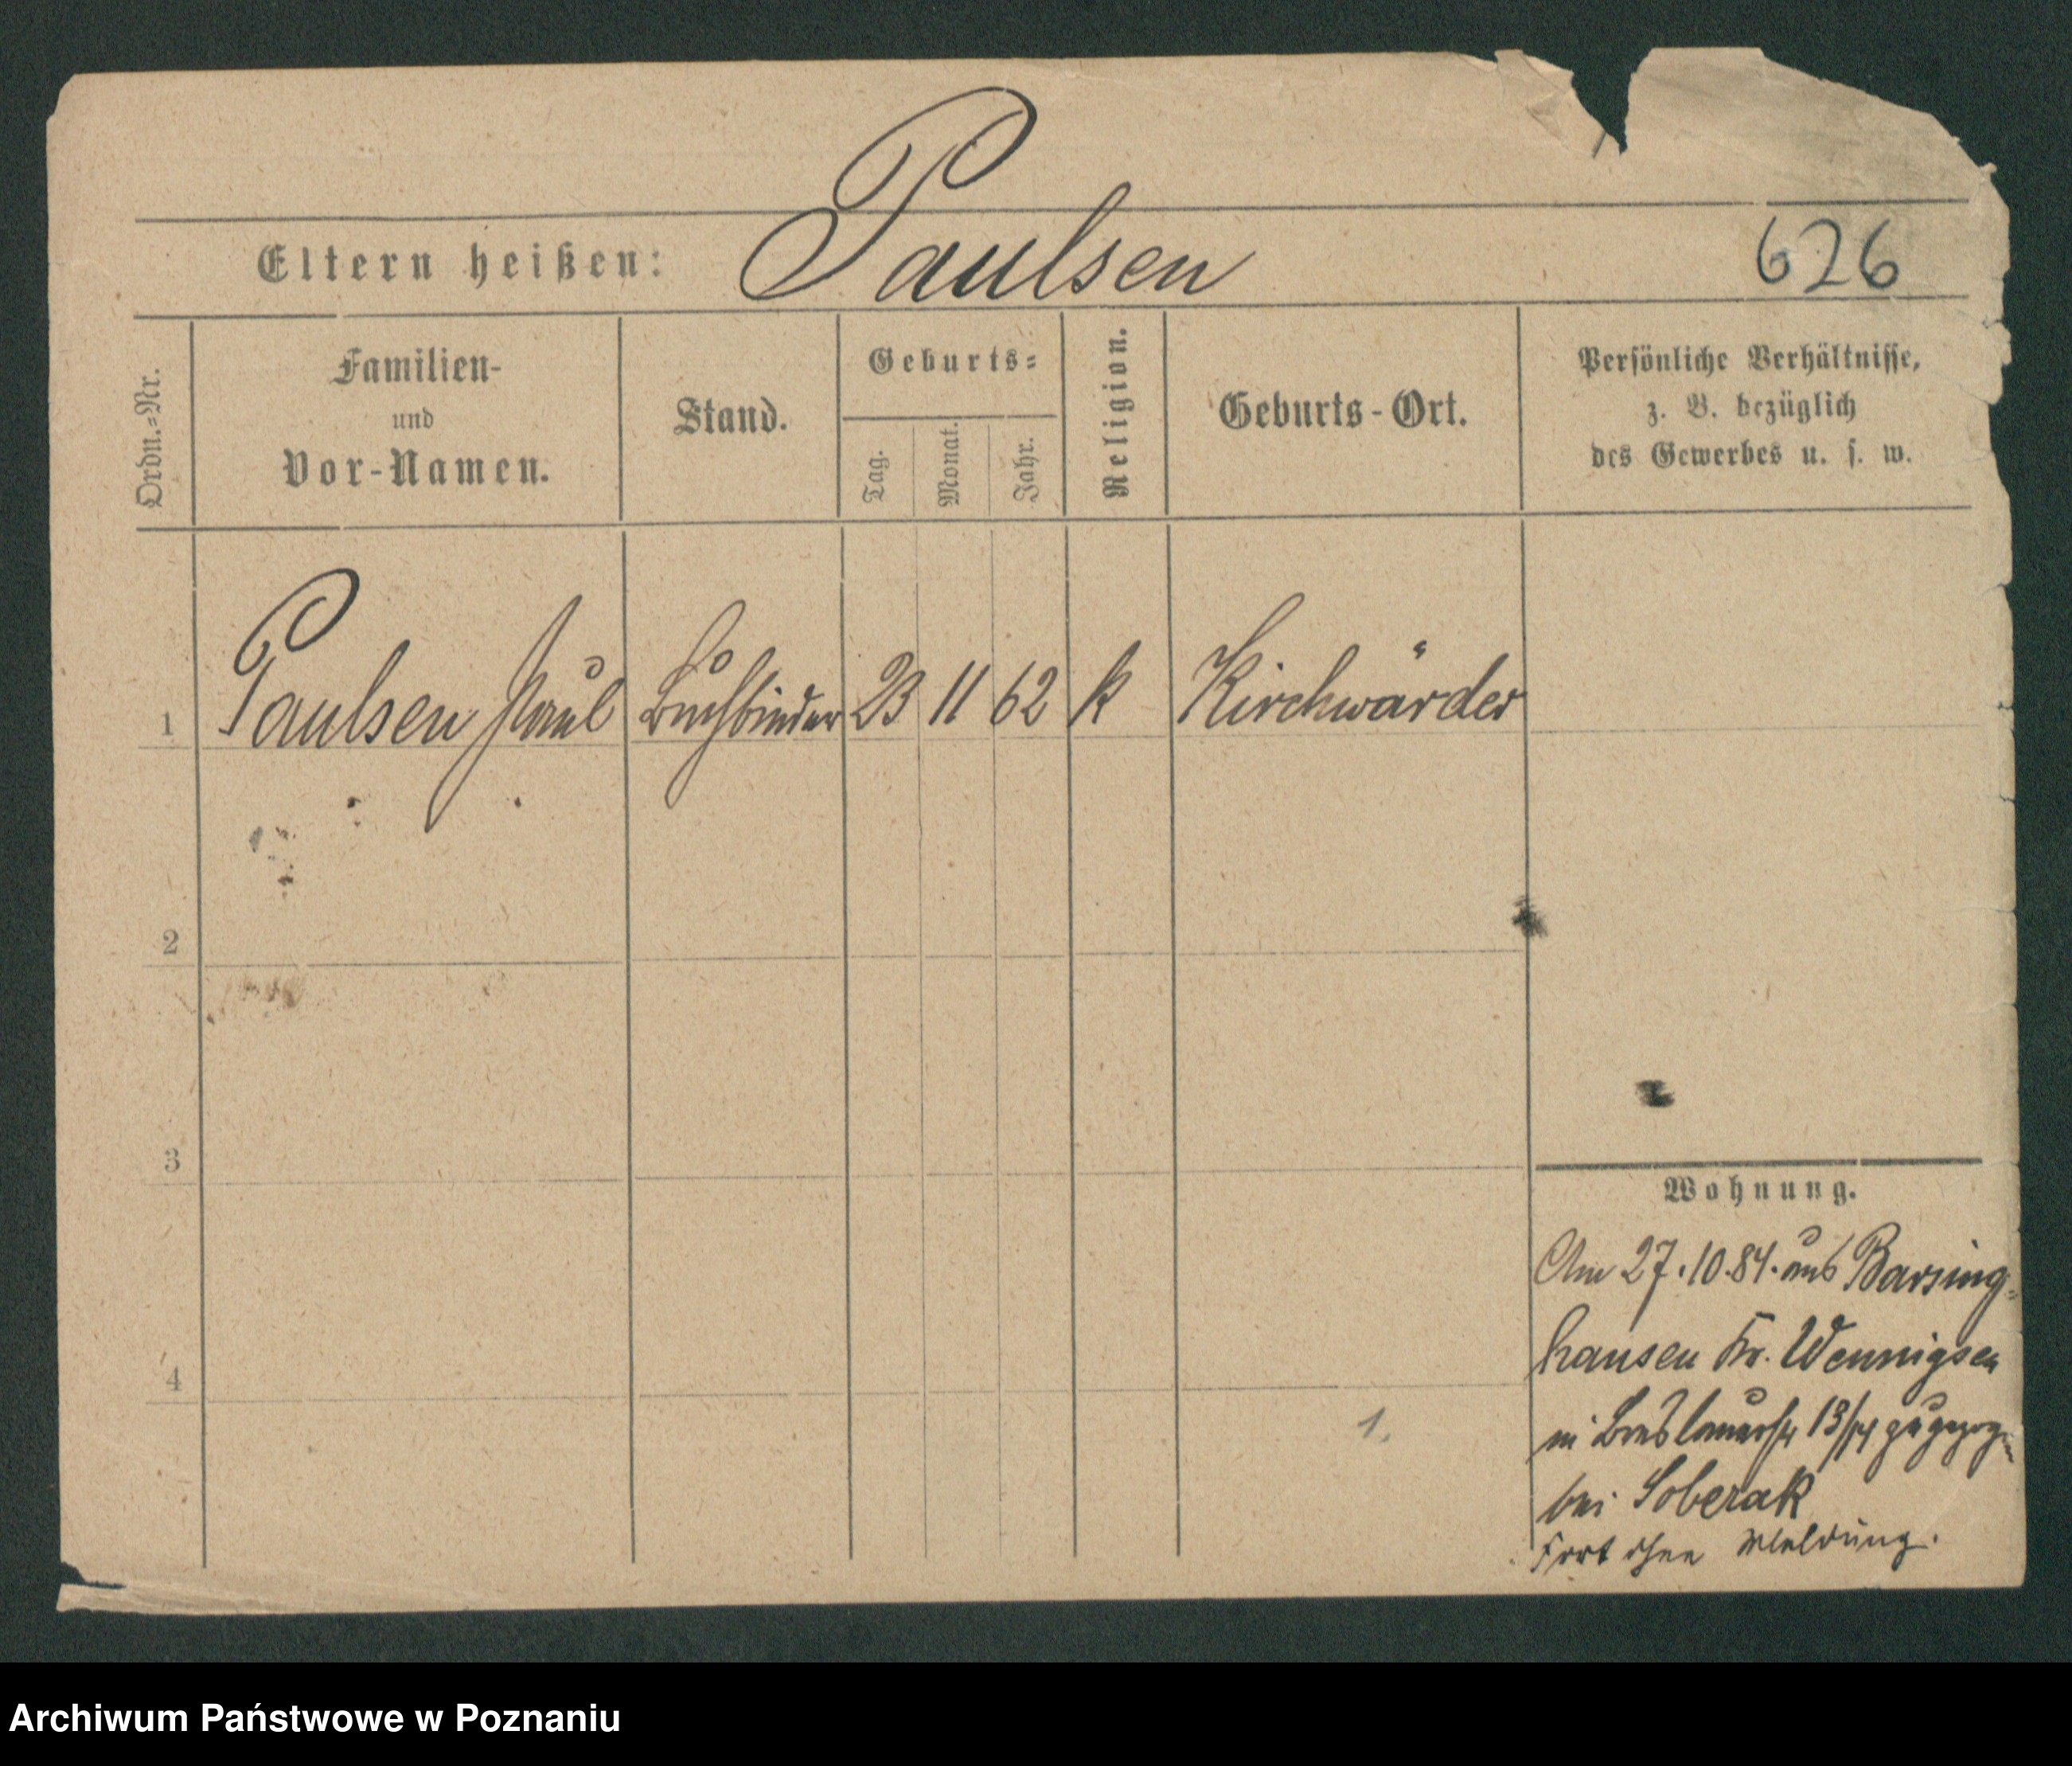 Paulsen
Eltern heißen:
626
Ordn.-Nr.
Familien-
und
Vor-Namen.
Stand.
Geburts-
Tag.
Monat.
Jahr.
Religion.
Geburts-Ort.
Persönliche Verhältnisse,
z. B. bezüglich
des Gewerbes u. s. w.
1 Paulsen Paul Buchbinder 23 11 62 k Kirchwärder
2
3
4
1.
Wohnung.
Am 27.10.84. aus Barsing-
hausen Kr. Wennigsen
in Breslauerstr 13/14 zugezogen
bei Soberak
Fort ohne Meldung.
Archiwum Państwowe w Poznaniu